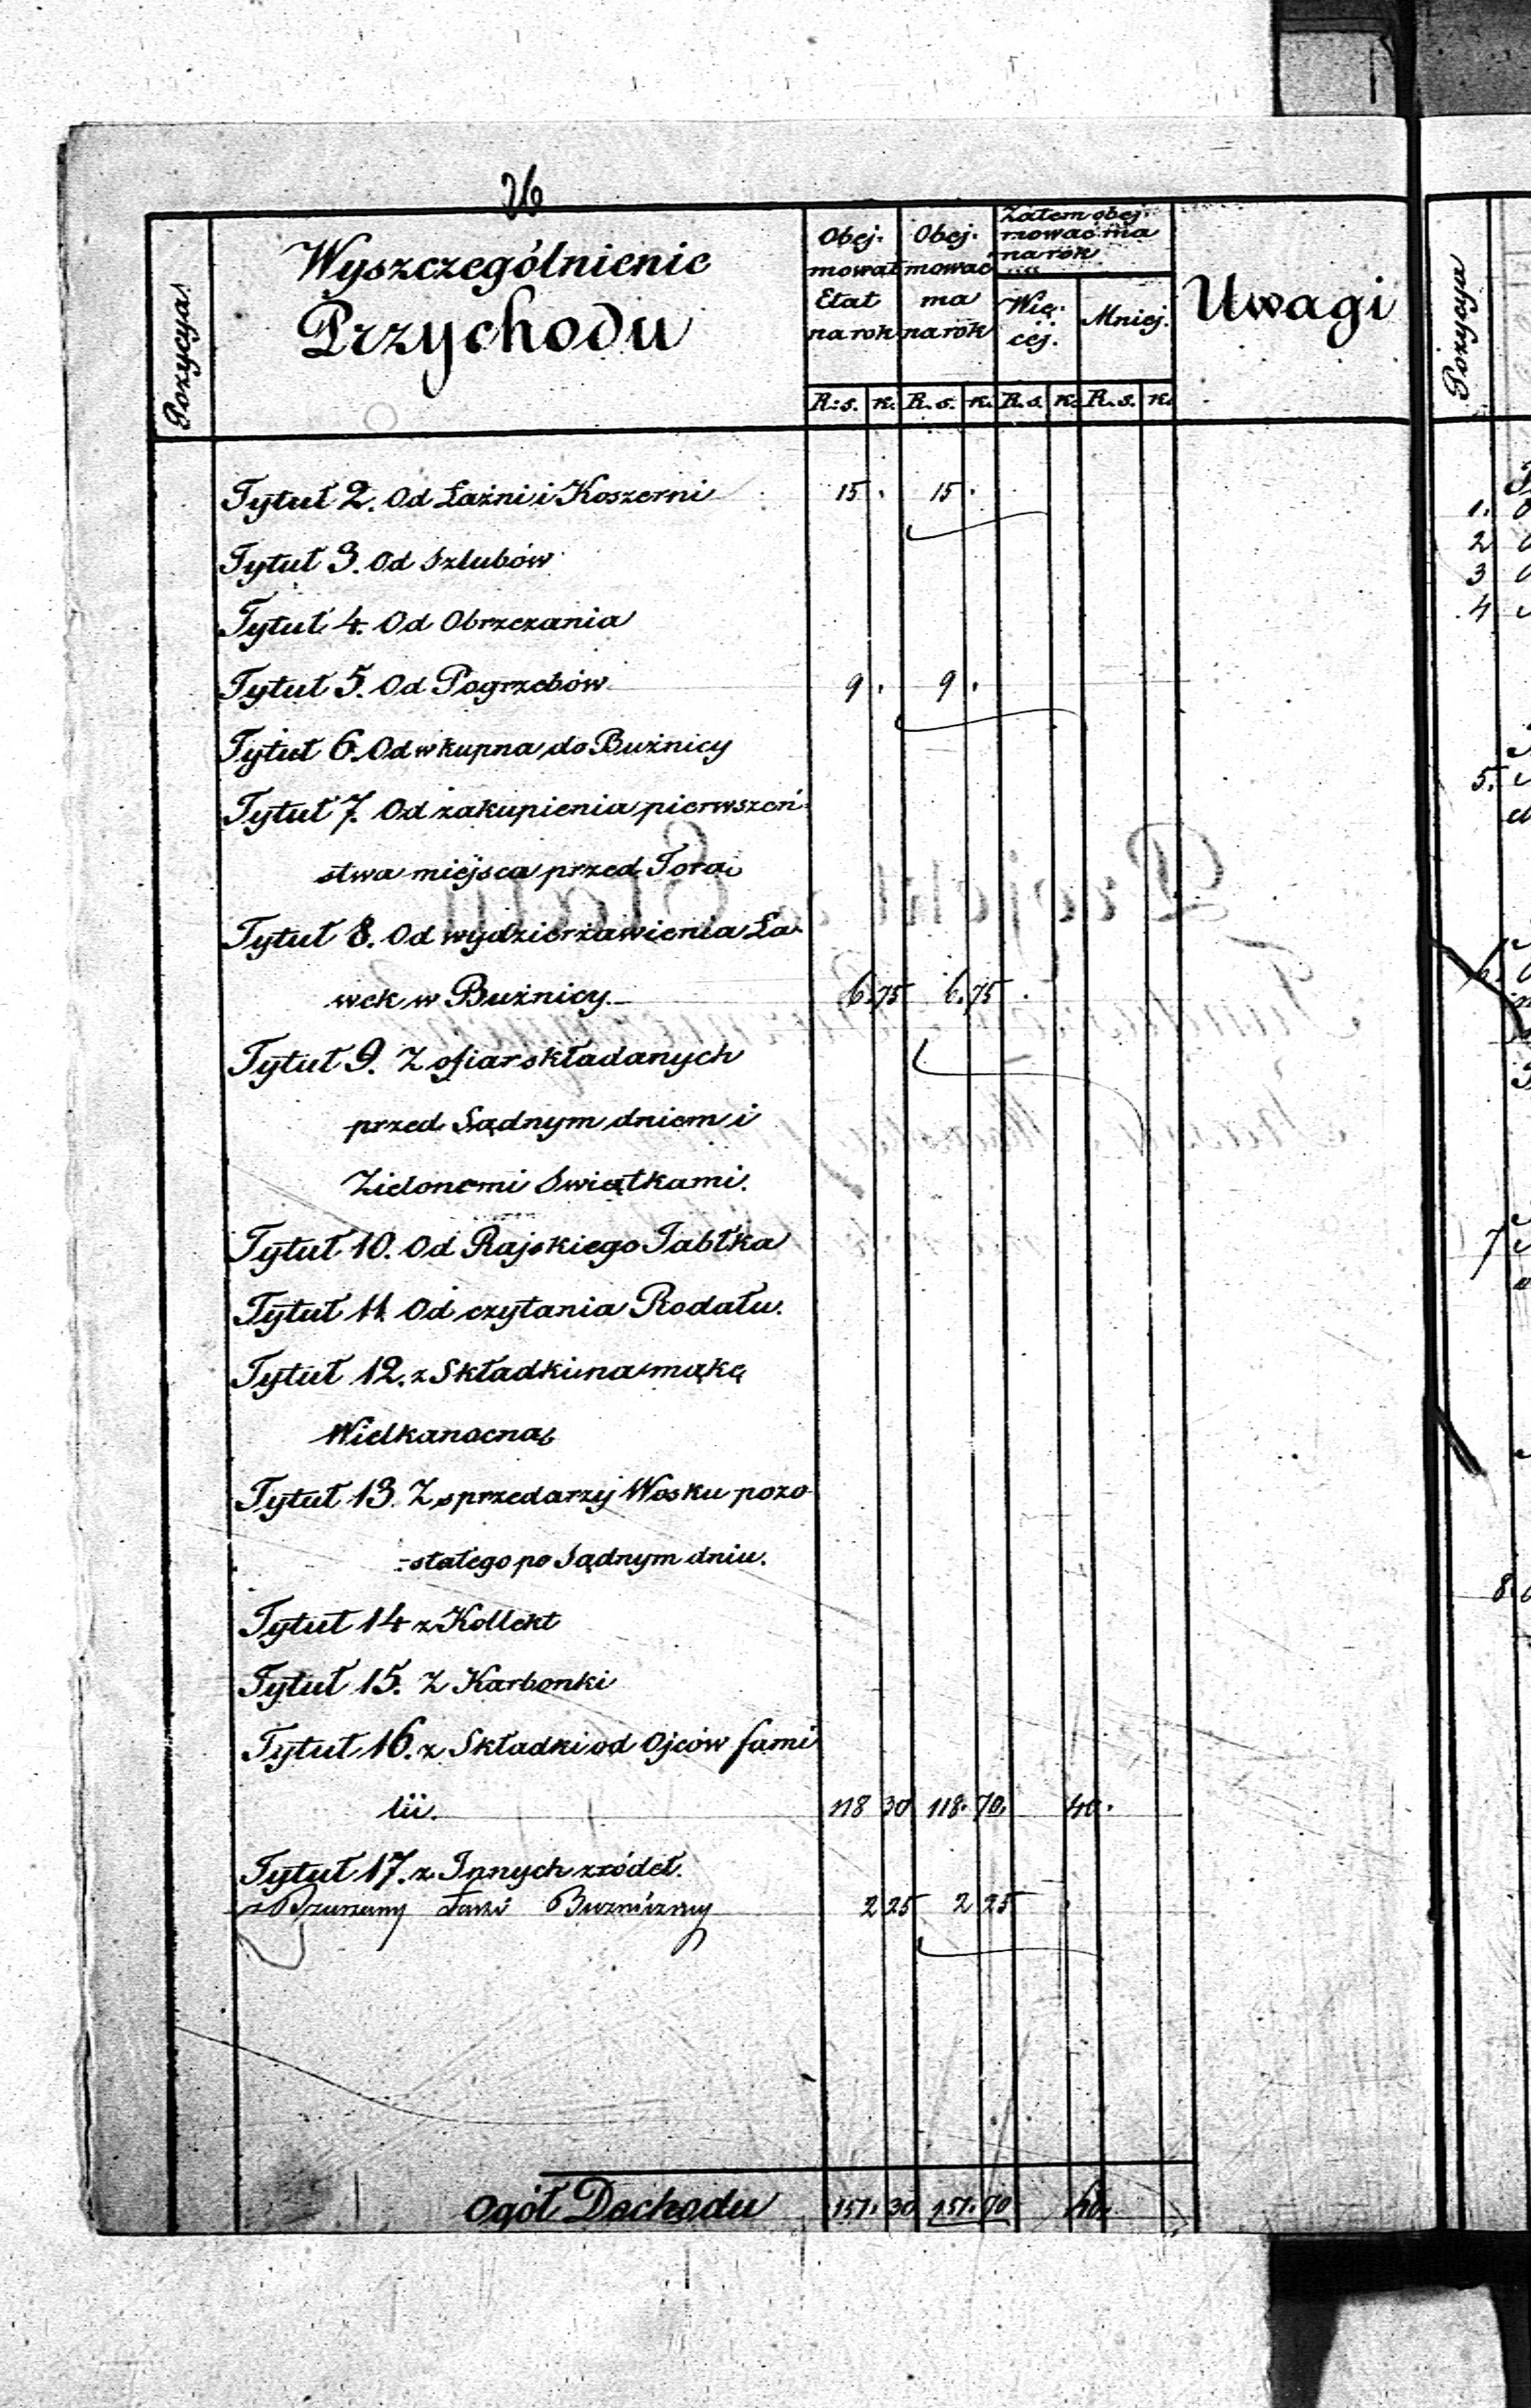 26
Pozycya
Wyszczególnienie
Przychodu
Obej-
mował
Etat
na rok
Obej-
mować
ma
na rok
Zatem obej-
mować ma
na rok
Wię-
cej.
Mniej.
Uwagi
R:s. k. R.s. k. R.s. k. R.s. k.
Tytuł 2. Od Łaźni i Koszerni 15 . 15 .
Tytuł 3. Od Szlubów
Tytuł 4. Od Obrzezania
Tytuł 5. Od Pogrzebów 9 . 9 .
Tytuł 6. Od wkupna do Buźnicy
Tytuł 7. Od zakupienia pierwszeń-
stwa miejsca przed Torą
Tytuł 8. Od wydzierżawienia Ła-
wek w Buźnicy. 6. 75 6. 75
Tytuł 9. Z ofiar składanych
przed Sądnym dniem i
Zielonemi Swiątkami.
Tytuł 10. Od Rajskiego Jabłka
Tytuł 11. Od czytania Rodału.
Tytuł 12. z Składki na mąkę
Wielkanocną
Tytuł 13. Z sprzedarzy Wosku pozo-
stałego po Sądnym dniu.
Tytuł 14 z Kollekt
Tytuł 15. Z Karbonki
Tytuł 16. z Składki od Ojców fami
lii. 118 30 118. 70. 40.
Tytuł 17. z Innych źródeł.
Buzniczny 2 25 2 25
Ogół Dochodu 151. 30 151. 70 40.
Pozycya
1.
2
3
4
5.
6.
7
8